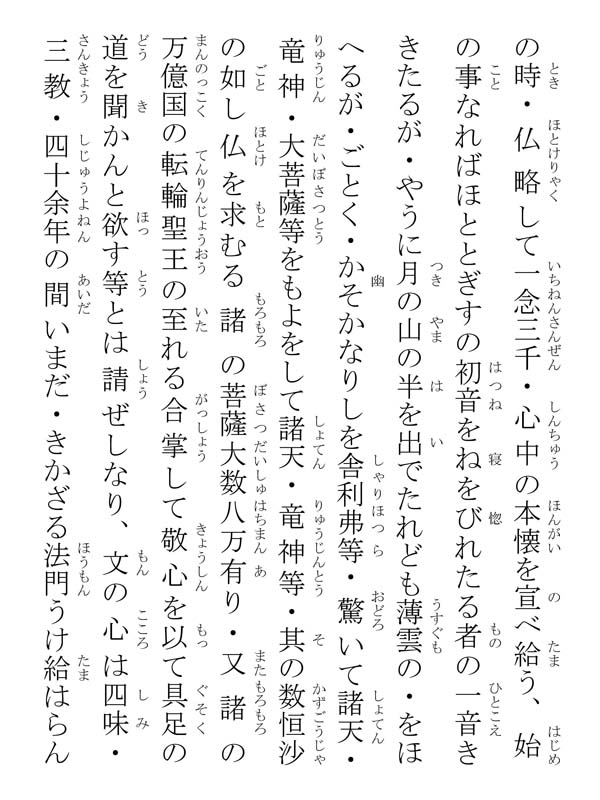 の時・仏略して一念三千・心中の本懐を宣べ給う、始
の事なればほととぎすの初音をねをびれたる者の一音き
きたるが・やうに月の山の半を出でたれども薄雲の・をほ
へるが・ごとく・かそかなりしを舎利弗等・驚いて諸天・
竜神・大菩薩等をもよをして諸天・竜神等・其の数恒沙
の如し仏を求むる諸の菩薩大数八万有り・又諸の
万億国の転輪聖王の至れる合掌して敬心を以て具足の
道を聞かんと欲す等とは請ぜしなり、文の心は四味・
三教・四十余年の間いまだ・きかざる法門うけ給はらん